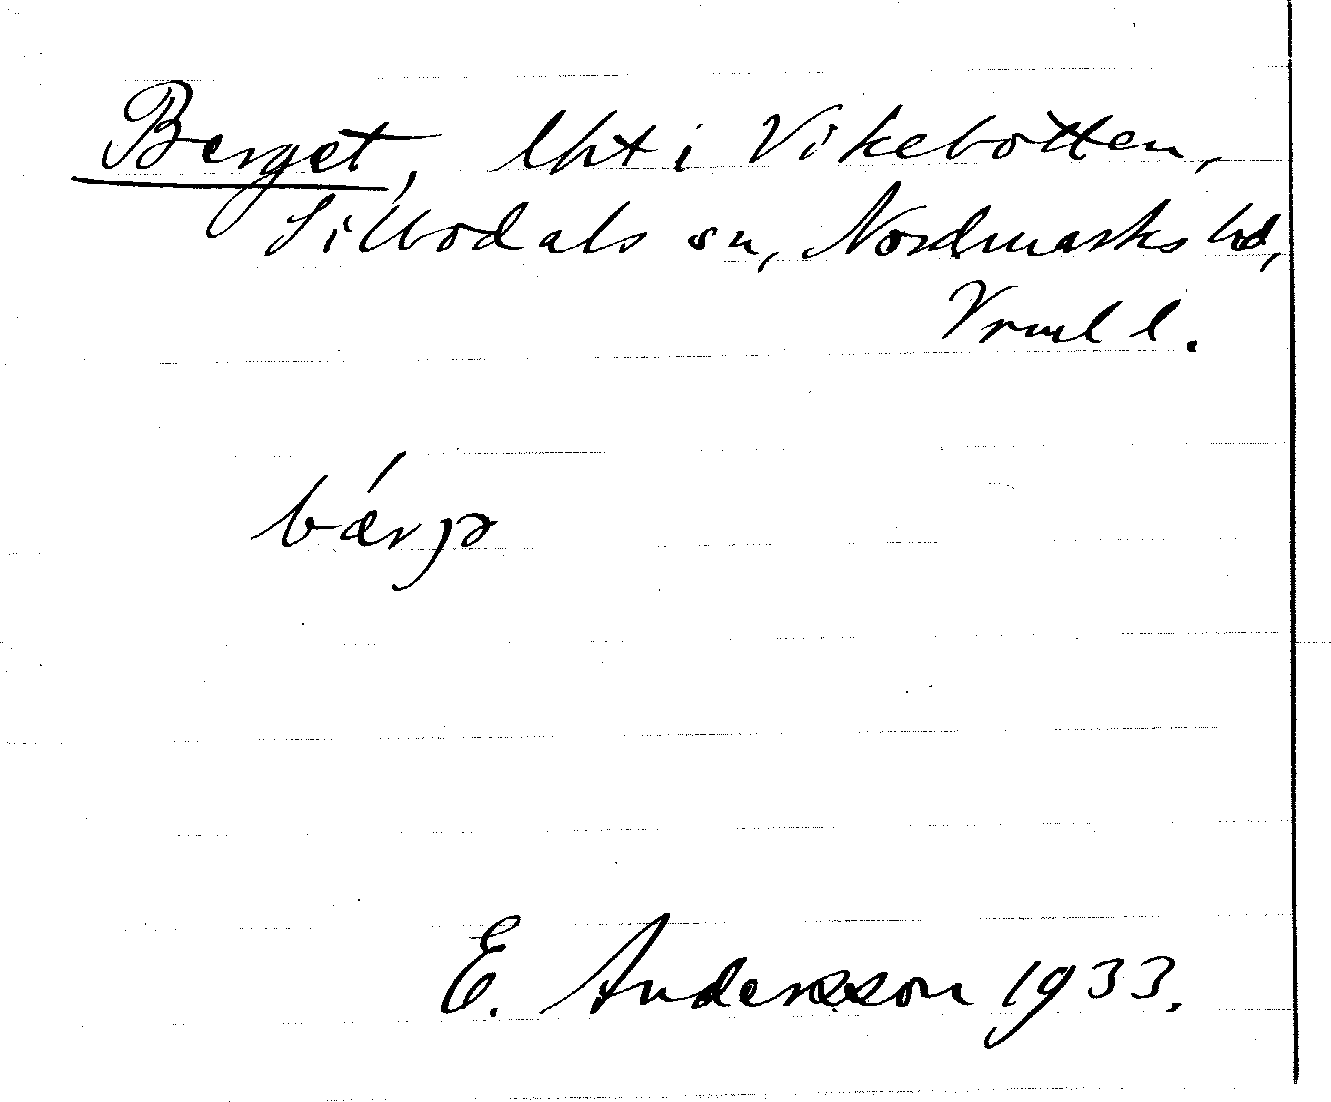 Berget, lht i Vikebotten,
Sillbodals sn, Nordmarks hd,
Vrml l.
bǽrjə
E. Andersson 1933.